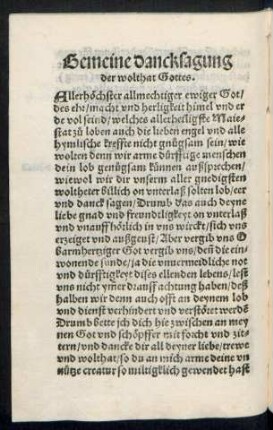 Gemeine dancksagung
der wolthat Gottes.
Allerhöchster allmechtiger ewiger Got/
des ehr/macht vnd herligkeit himel vnd er
de vol seind/welches allerheiligste Maie-
stat zů loben auch die lieben engel vnd alle
hymlische kreffte nicht gnügsam sein/wie
wolten denn wir arme dürfftige menschen
dein lob genügsam künnen außsprechen/
wiewol wir dir vnserm aller gnedigsten
woltheter billich on vnterlaß solten lob/eer
vnd danck sagen/Drumb das auch deyne
liebe gnad vnd freundtligkeyt on vnterlaß
vnd vnauffhörlich in vns wirckt/sich vns
erzeiget vnd außgeust/Aber vergib vns O
barmhertziger Got vergib vns/deß die ein-
wonende sunde/ja die vnuermeidliche not
vnd dürfftigkeyt dises ellenden lebens/lest
vns nicht ymer drauff achtung haben/deß
halben wir denn auch offt an deynem lob
vnd dienst verhindert vnd verstöret werdẽ
Drumb bette jch dich hie zwischen an mey
nen Got vnd schöpffer mit forcht vnd zit-
tern/vnd dancke dir all deyner liebe/trewe
vnd wolthat/so du an mich arme deine vn
nütze creatur so miltigklich gewendet hast